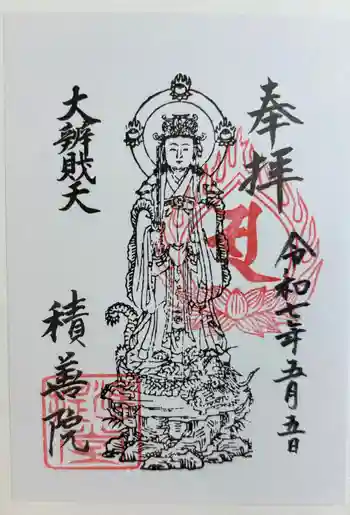 奉拝
令和七年五月五日
大辨財天
積善院